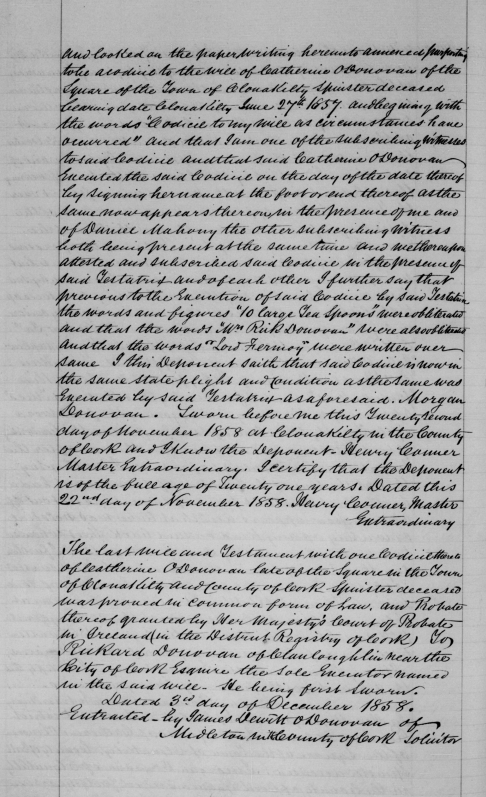 and looked on the paper writing hereunto annexed purporting
to be a codicil to the will of Catherine O'Donovan of the
Square of the Town of Clonakilty Spinster deceased
bearing date Clonakilty June 27th 1857. and begining with
the words "Codicil to my will as circumstances have
ocurred" And that I am one of the subscribing Witnesses
to said Codicil and that said Catherine O'Donovan
Executed the said Codicil on the day of the date thereof
by signing her name at the foot or end thereof as the
same now appears thereon, in the presence of me and
of Daniel Mahony the other subscribing Witness
both being present at the same time and we thereupon
attested and subscribed said Codicil in the presence of
said Testatrix and of each other I further say that
previous to the Execution of said Codicil by said Testatrix
the words and figures "10 large Tea Spoons" were obliterated
and that the words "Mr. Rick Donovan" were also obliterated
And that the words "Lord Fermoy" were written over
same I this Deponent saith that said Codicil is now in
the same state plight and Condition as the same was
Executed by said Testatrix as aforesaid. Morgan
Donovan. Sworn before me this Twenty second
day of November 1858 at Clonakilty in the County
of Cork and I know the Deponent. Henry Conner
Master Extraordinary. I certify that the Deponent
is of the full age of Twenty one years. Dated this
22nd day of November 1858. Henry Conner, Master
Extraordinary
The last Will and Testament with one Codicil thereto
of Catherine O'Donovan late of the Square in the Town
of Clonakilty and County of Cork Spinster deceased
was proved in Common form of Law, and Probate
thereof granted by Her Majesty's Court of Probate
in Ireland (in the District Registry of Cork) To
Rickard Donovan of Clanloughlin near the
City of Cork Esquire the Sole Executor named
in the said will. He being first Sworn.
Dated 3rd day of December 1858.
Extracted by James Dewitt O'Donovan of
Midleton in the County of Cork Solicitor